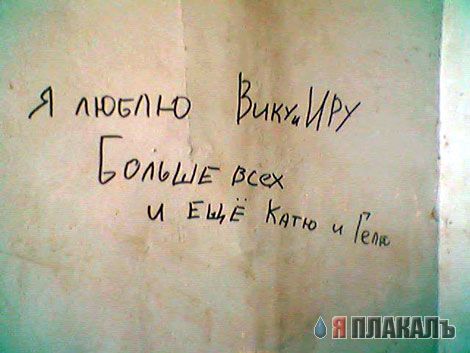 Я ЛЮБЛЮ ВИКУ и ИРУ
БОЛЬШЕ ВСЕХ
И ЕЩЁ КАТЮ и Гелю
Я ПЛАКАЛЪ